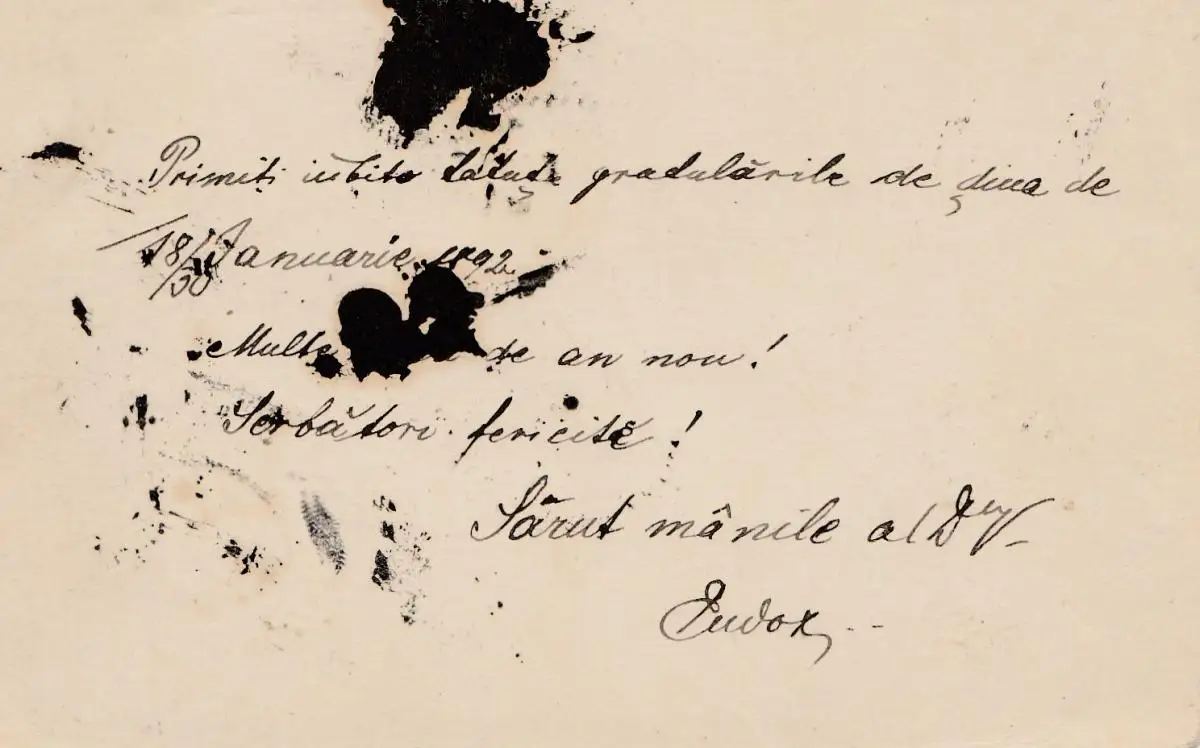 Primiti iubite tătuțe gratulările de ḑiua de
18/30 Ianuarie 1892.
Multe de an nou!
Serbători fericite!
Sărut mânile al D
Eudox